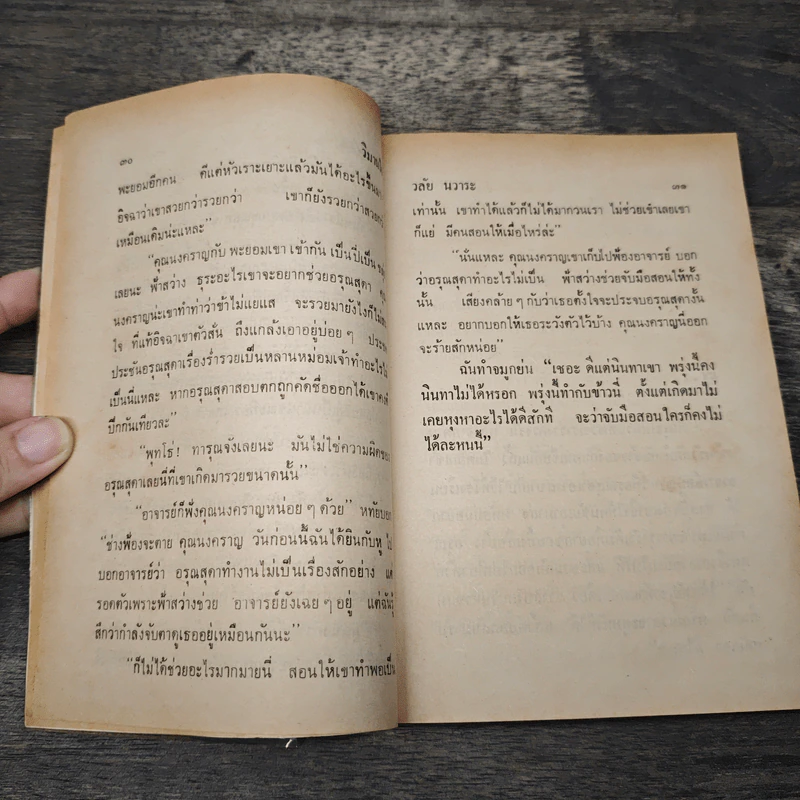 ๓๐
พะยอมอีกคน ดีแต่หัวเราะเยาะแล้วมันได้อะไรขึ้นมา
อิจฉาว่าเขาสวยกว่ารวยกว่า เขาก็ยังรวยกว่าสวยกว่า
เหมือนเดิมน่ะแหละ"
"คุณนงคราญกับ พะยอมเขา เข้ากัน เป็นปี่เป็น
เลยนะ ฟ้าสว่าง ธุระอะไรเขาจะอยากช่วยอรุณสุดา
นงคราญน่ะเขาทำท่าว่าข้าไม่แยแส จะรวยมายังไงก็ไม่
ใจ ที่แท้อิจฉาเขาตัวสั่น ถึงแกล้งเอาอยู่บ่อย ๆ
ประชันอรุณสุดาเรื่องร่ำรวยเป็นหลานหม่อมเจ้าทำอะไรไม่
เป็นนี่แหละ หากอรุณสุดาสอบตกถูกคัดชื่อออกได้เขาคง
ปีกกันเทียวละ"
"พุทโธ่! ทารุณจังเลยนะ มันไม่ใช่ความผิดของ
อรุณสุดาเลยนี่ที่เขาเกิดมารวยขนาดนั้น"
"อาจารย์ก็ฟังคุณนงคราญหน่อย ๆ ด้วย" หทัยบอก
"ช่างฟ้องจะตาย คุณนงคราญ วันก่อนนี้ฉันได้ยินกับหู ไป
บอกอาจารย์ว่า อรุณสุดาทำงานไม่เป็นเรื่องสักอย่าง แต่
รอดตัวเพราะฟ้าสว่างช่วย อาจารย์ยังเฉย ๆ อยู่ แต่ฉันรู้
สึกว่ากำลังจับตาดูเธออยู่เหมือนกันนะ"
"ก็ไม่ได้ช่วยอะไรมากมายนี่ สอนให้เขาทำพอเป็น
วลัย นวาระ ๓๑
เท่านั้น เขาทำได้แล้วก็ไม่ได้มากวนเรา ไม่ช่วยเข้าเลยเขา
ก็แย่ มีคนสอนให้เมื่อไหร่ล่ะ"
"นั่นแหละ คุณนงคราญเขาเก็บไปฟ้องอาจารย์ บอก
ว่าอรุณสุดาทำอะไรไม่เป็น ฟ้าสว่างช่วยจับมือสอนให้ทั้ง
นั้น เสียงคล้าย ๆ กับว่าเธอตั้งใจจะประจบอรุณสุดางั้น
แหละ อยากบอกให้เธอระวังตัวไว้บ้าง คุณนงคราญนี่ออก
จะร้ายสักหน่อย"
ฉันทำจมูกย่น "เชอะ ดีแต่นินทาเขา พรุ่งนี้คง
นินทาไม่ได้หรอก พรุ่งนี้ทำกับข้าวนี่ ตั้งแต่เกิดมาไม่
เคยหุงหาอะไรได้ดีสักที จะว่าจับมือสอนใครก็คงไม่
ได้ละหนนี้"